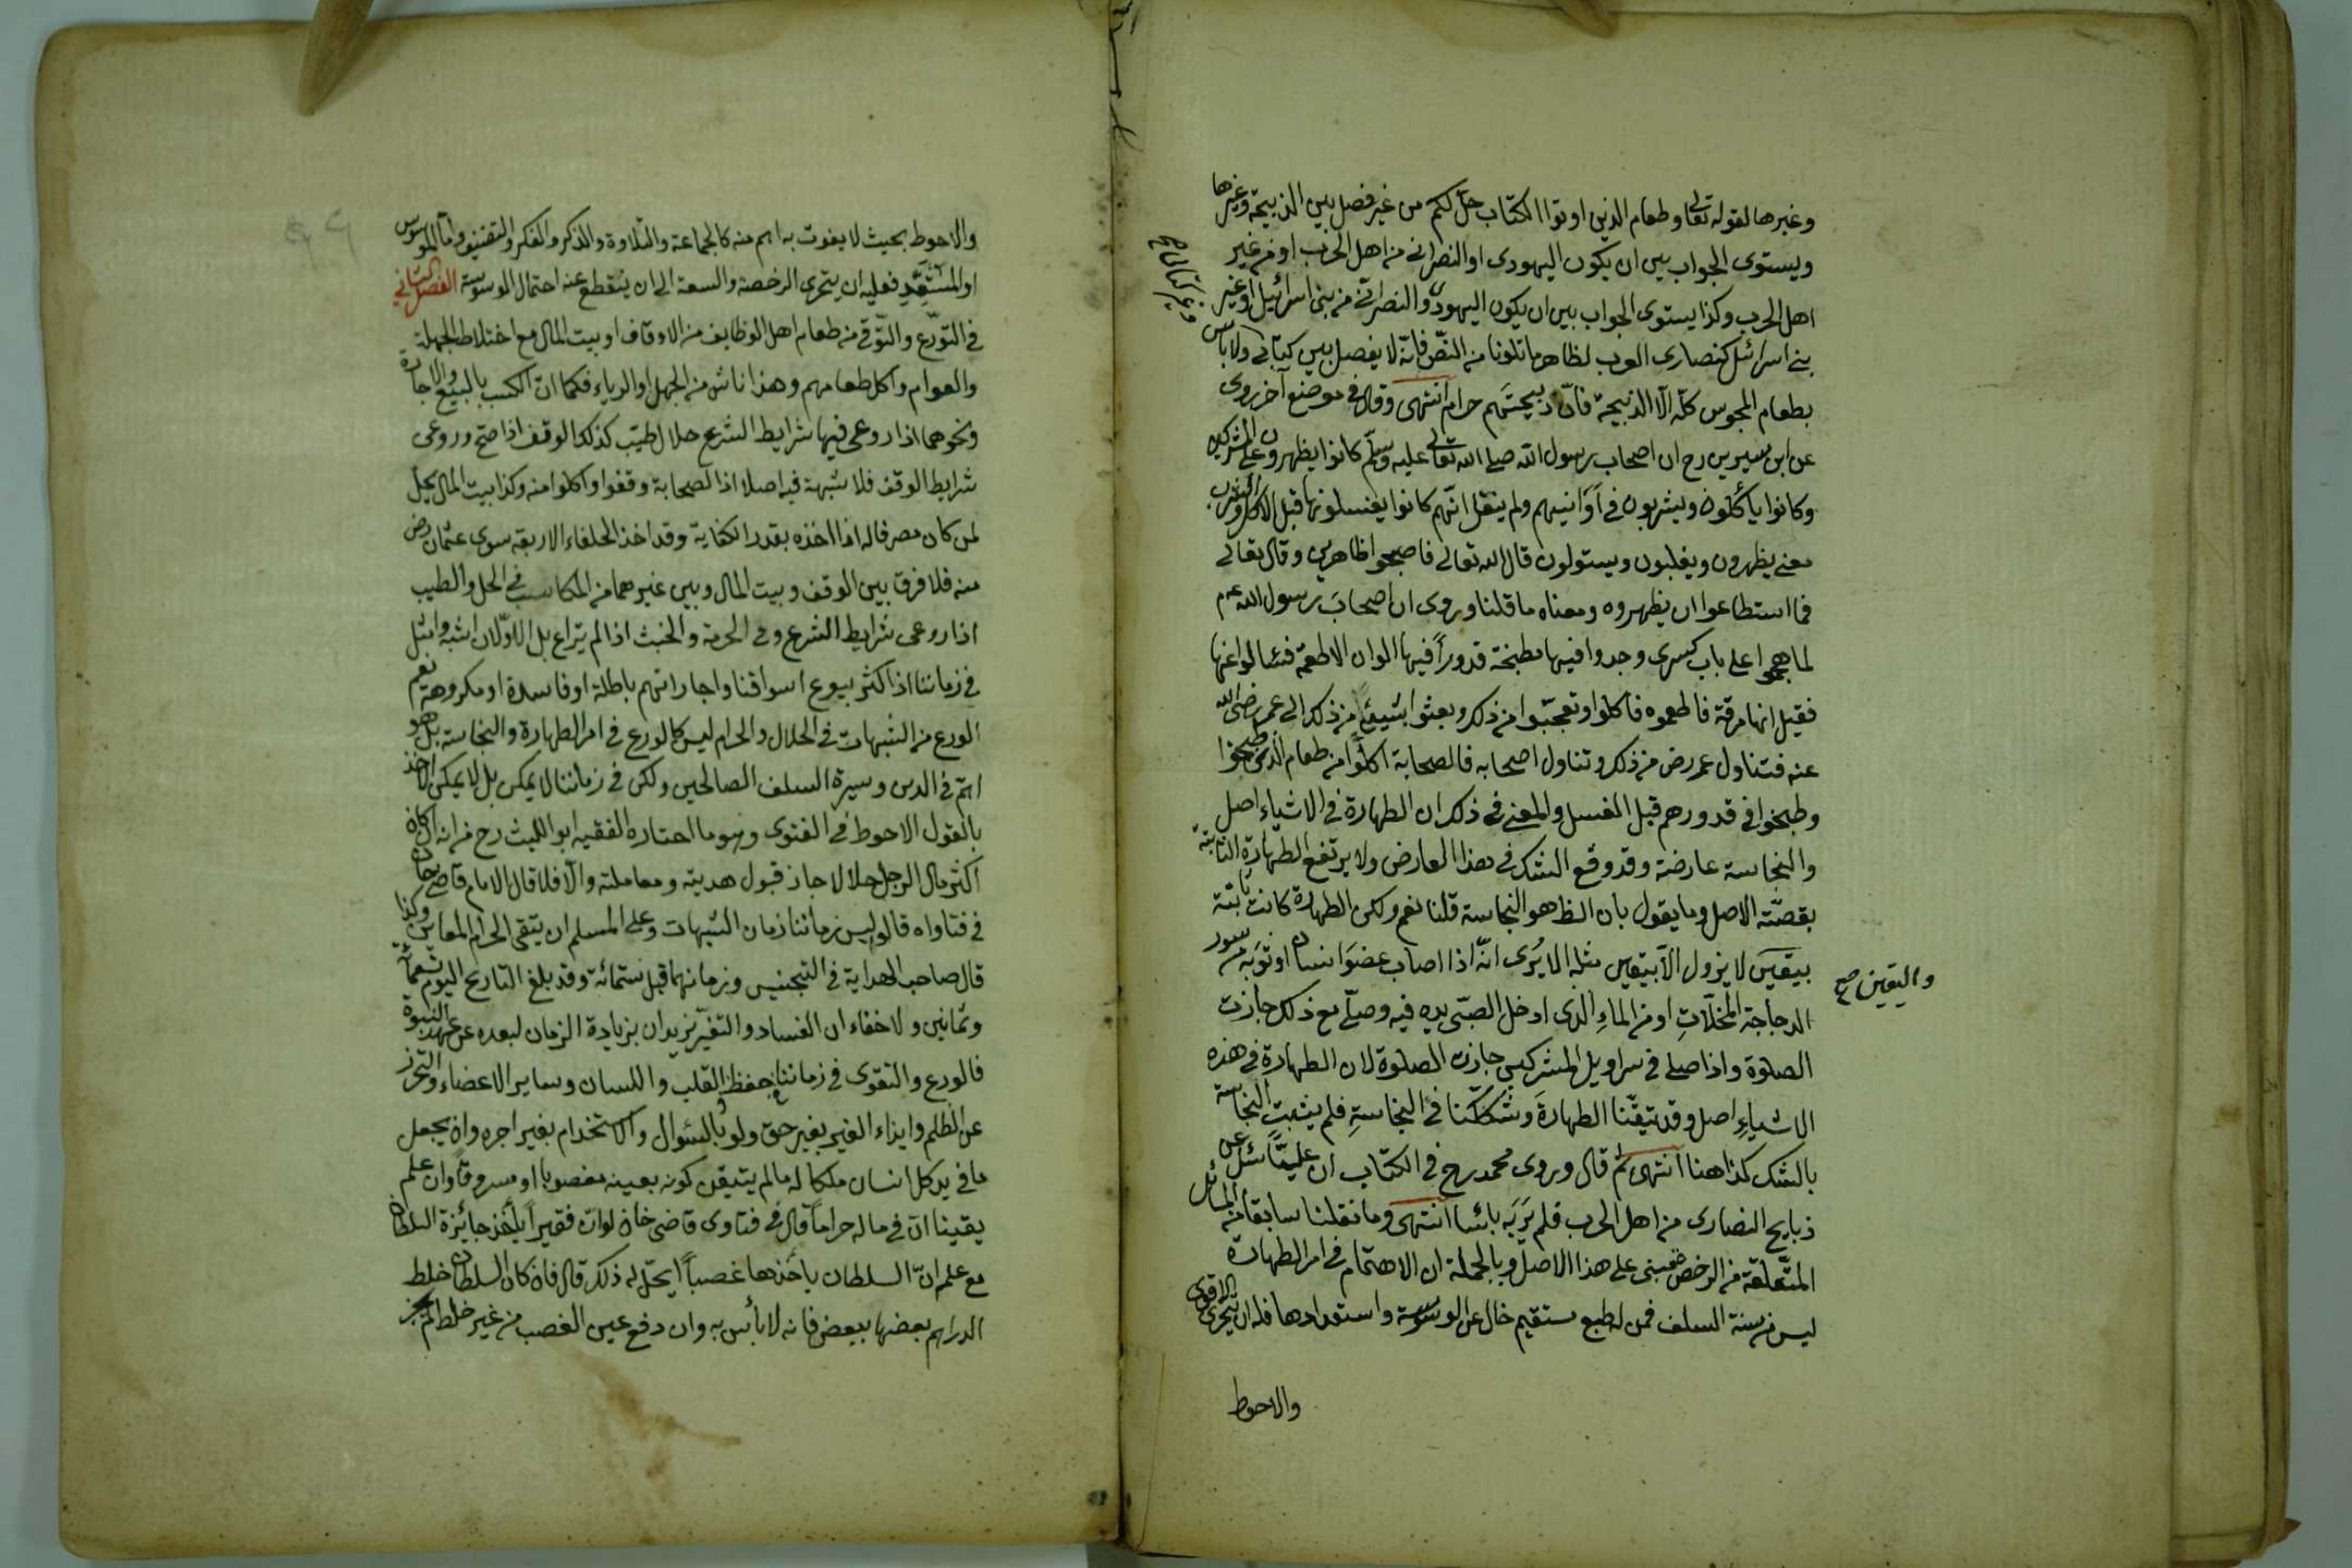 وغيرها لقوله تعالى وطعام الذين اوتوا الكتاب حلّ لكم من غير فصل بين الذبيحة وغيرها
ويستوى الجواب بين ان يكون اليهودى او النصرانى من اهل الحرب او من غير
اهل الحرب وكذا يستوى الجواب بين ان يكون اليهودى والنصرانى من بنى اسرائيل او غير
بنى اسرائيل كنصارى العرب لظاهر ما تلونا من النصّ فانه لا يفصل بين كتابى ولا بأس
وغير كتابى صح
بطعام المجوس كلّه الّا الذبيحة فانّ ذبيحتهم حرام انتهى وقال فى موضع آخر روى
عن ابن سيرين رح ان اصحاب رسول الله صلى الله تعالى عليه وسلّم كانوا يظهرون على المشركين
وكانوا يأكلون ويشربون فى اَوَانيهم ولم ينقل انّهم كانوا يغسلونها قبل الاكل والشرب
معنى يظهرون ويغلبون ويستولون قال الله تعالى فاصبحوا ظاهرين وقال تعالى
فما استطاعوا ان يظهروه ومعناه ما قلنا وروى ان اصحابَ رسول الله عم
لما هجموا على باب كسرى وجدوا فيها مطبخة قدوراً فيها الوان الاطعمة فسالوا عنها
فقيل انها مرقة فاطعموه فاكلوا وتعجّبوا من ذلك وبعثوا بشيئ من ذلك الى عمر رضى الله
عنه فتناول عمر رض من ذلك وتناول اصحابه فالصحابة اكلوا من طعام الذى طبخوا
وطبخوا فى قدورهم قبل الغسل والمعنى فى ذلك ان الطهارة فى الاشياء اصل
والنجاسة عارضة وقد وقع الشك فى هذا العارض ولا يرتفع الطهارة الثابتة
بقضيّة الاصل وما يقول بان الظ هو النجاسة قلنا نعم ولكن الطهارة كانت ثابتة
بيقين لا يزول الّا بيقين مثله الا يُرى انّه اذا اصاب عضوَ انسان او ثوبَه من سور
واليقين صح
الدجاجة المخلّاتِ او من الماءِ الذى ادخل الصبّى يده فيه وصلّى مع ذلك جازت
الصلوة واذا صلى فى سراويل المشركين جازت الصلوة لان الطهارة فى هذه
الاشياءِ اصل وقد تيقّنا الطهارةَ وشككنا فى النجاسةِ فلم يثبت النجاسة
بالشك كذا هنا انتهى ثم قال وروى محمد رح فى الكتاب ان عليّاً سئل عن
ذبايح النصارى من اهل الحرب فلم يَرَ به بائسا انتهى وما نقلنا سابقا من المسائل
المتعلقة من الرخص مبنى على هذا الاصل وبالجملة ان الاهتمام فى امر الطهارة
ليس من سنة السلف فمن له طبع مستقيم خال عن الوسوسة واستعدادها فله ان يتحرى الاقوى
والاحوط
والاحوط بحيث لا يفوت به اهم منه كالجماعة والتلاوة والذكر والفكر والتصنيف واما الموسوس
او المستعِدّ فعليه ان يتحرى الرخصة والسعة الى ان ينقطع عنه احتمال الوسوسة الفصل الثانى
فى التورّع والتّوقى من طعام اهل الوظايف من الاوقاف او بيت المال مع اختلاط الجهلة
والعوام واكل طعامهم وهذا ناش من الجهل او الرياء فكما انّ الكسب بالبيع والاجارة
ونحوهما اذا روعى فيها شرايط الشرع حلال طيّب كذلك الوقف اذا صحّ وروعى
شرايط الوقف فلا شبهة فيه اصلا اذ الصحابة وقفوا واكلوا منه وكذا بيت المال يحلّ
لمن كان مصرفا له اذا اخذه بقدر الكفاية وقد اخذ الخلفاء الاربعة سوى عثمان رض
منه فلا فرق بين الوقف وبيت المال وبين غيرهما من المكاسب فى الحل والطيب
اذا روعى شرايط الشرع وفى الحرمة والخبث اذا لم يراع بل الاوّلان اشبه وامثل
فى زماننا اذ اكثر بيوع اسواقنا واجاراتهم باطلة او فاسدة او مكروهة نعم
الورع من الشبهات فى الحلال والحرام ليس كالورع فى امر الطهارة والنجاسة بل هو
اهمّ فى الدين وسيرة السلف الصالحين ولكن فى زماننا لا يمكن بل لا يمكن الاخذ
بالقول الاحوط فى الفتوى وهو ما اختاره الفقيه ابو الليث رح من انه ان كان
اكثر مال الرجل حلالا جاز قبول هديته ومعاملته والّا فلا قال الامام قاضى خان
فى فتاواه قالوا ليس زماننا زمان الشبهات وعلى المسلم ان يتقى الحرام المعاين وكذا
قال صاحب الهداية فى التجنيس وزمانهما قبل ستمائة وقد بلغ التاريخ اليوم تسعمائة
وثمانين ولا خفاء ان الفساد والتغيّر يزيدان بزيادة الزمان لبعده عن عهد النبوة
فالورع والتقوى فى زماننا حفظ القلب واللسان وساير الاعضاء والتحرز
عن الظلم وايذاء الغير بغير حق ولو بالسؤال والاستخدام بغير اجره وان يجعل
ما فى يد كل انسان ملكا له ما لم يتيقن كونه بعينه مغصوبا او مسروقاً وان علم
يقينا انّ فى ماله حراماً قال فى فتاوى قاضى خان لو انّ فقيراً يأخذ جائزة السلطان
مع علم انّ السلطان يأخذها غصباً ايحلّ له ذلك قال فان كان السلطان خلط
الدراهم بعضها ببعض فانه لا بأس به وان دفع عين الغصب من غير خلط لم يجز